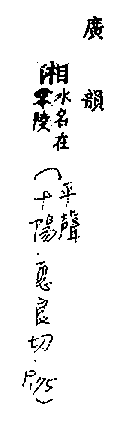 廣韻
湘
水名在
零陵
(平聲
十陽.息良切.P.175)